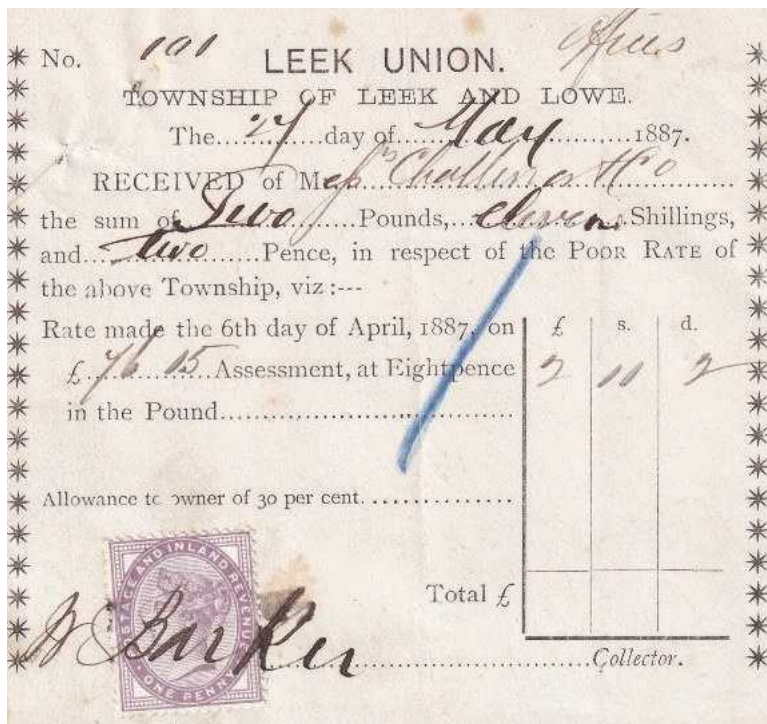 No. 101 LEEK UNION. Offices
TOWNSHIP OF LEEK AND LOWE.
The 27 day of May 1887.
RECEIVED of Mess Challinor & Co
the sum of Two Pounds, eleven Shillings,
and two Pence, in respect of the POOR RATE of
the above Township, viz :---
Rate made the 6th day of April, 1887, on £ s. d.
£ 76 15 Assessment, at Eightpence 2 11 2
in the Pound
Allowance to owner of 30 per cent.
POSTAGE AND INLAND REVENUE
ONE PENNY
Total £
Barker Collector.